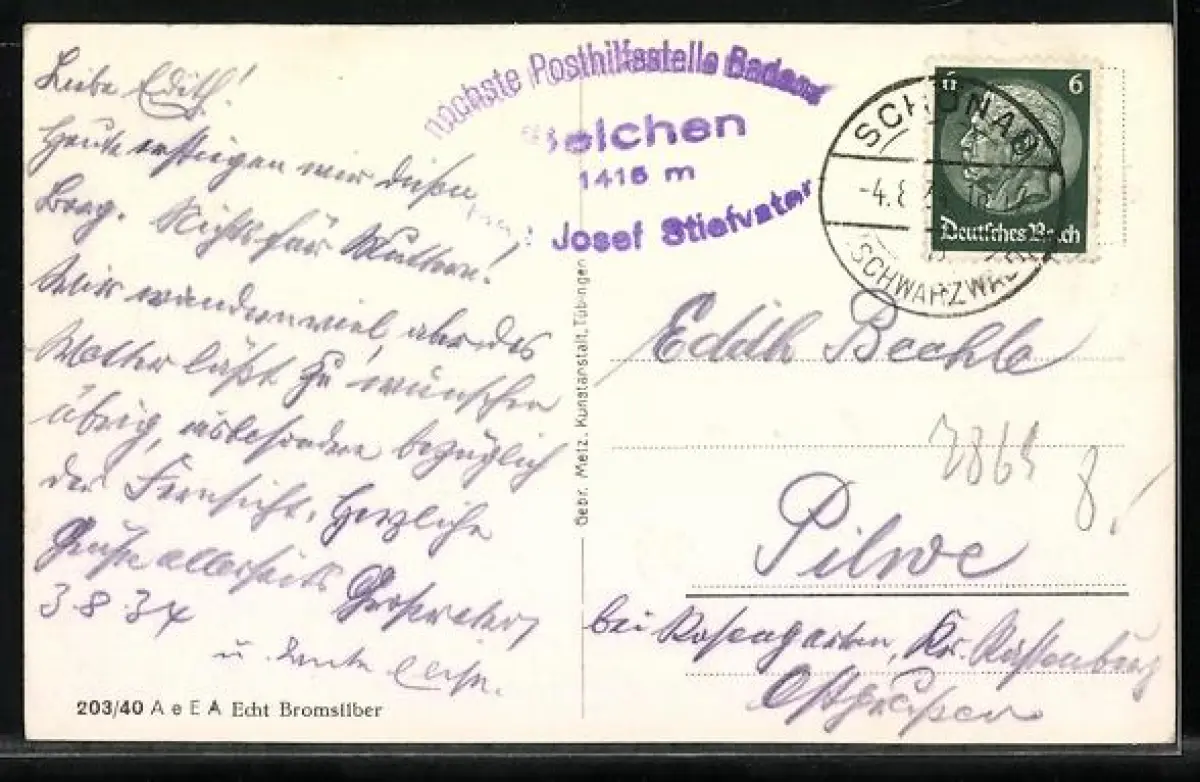 Liebe Edith!
Heute ersteigen wir diesen
Berg. Nichts für Muttern!
Wir wandern viel, aber das
Wetter läßt zu wünschen
übrig, insbesondere bezüglich
der Fernsicht. Herzliche
Grüße allerseits Großvater
3 8 34
u. Tante
203/40 A e E A Echt Bromsilber
Gebr. Metz. Kunstanstalt, Tübingen
nächste Posthilfsstelle Badens
Belchen
1415 m
Josef Stiefvater
SCHÖNAU
-4.8
(SCHWARZWALD)
6 6
Deutsches Reich
Edith Bechle
8
Pilwe
bei Rosengarten, Kr. Rastenburg
Ostpreussen